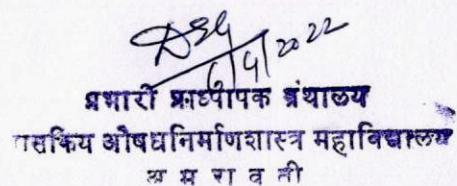 6/4/2022
प्रभारी प्राध्यापक ग्रंथालय
ासकिय औषधनिर्माणशास्त्र महाविद्यालय
अ म रा व ती